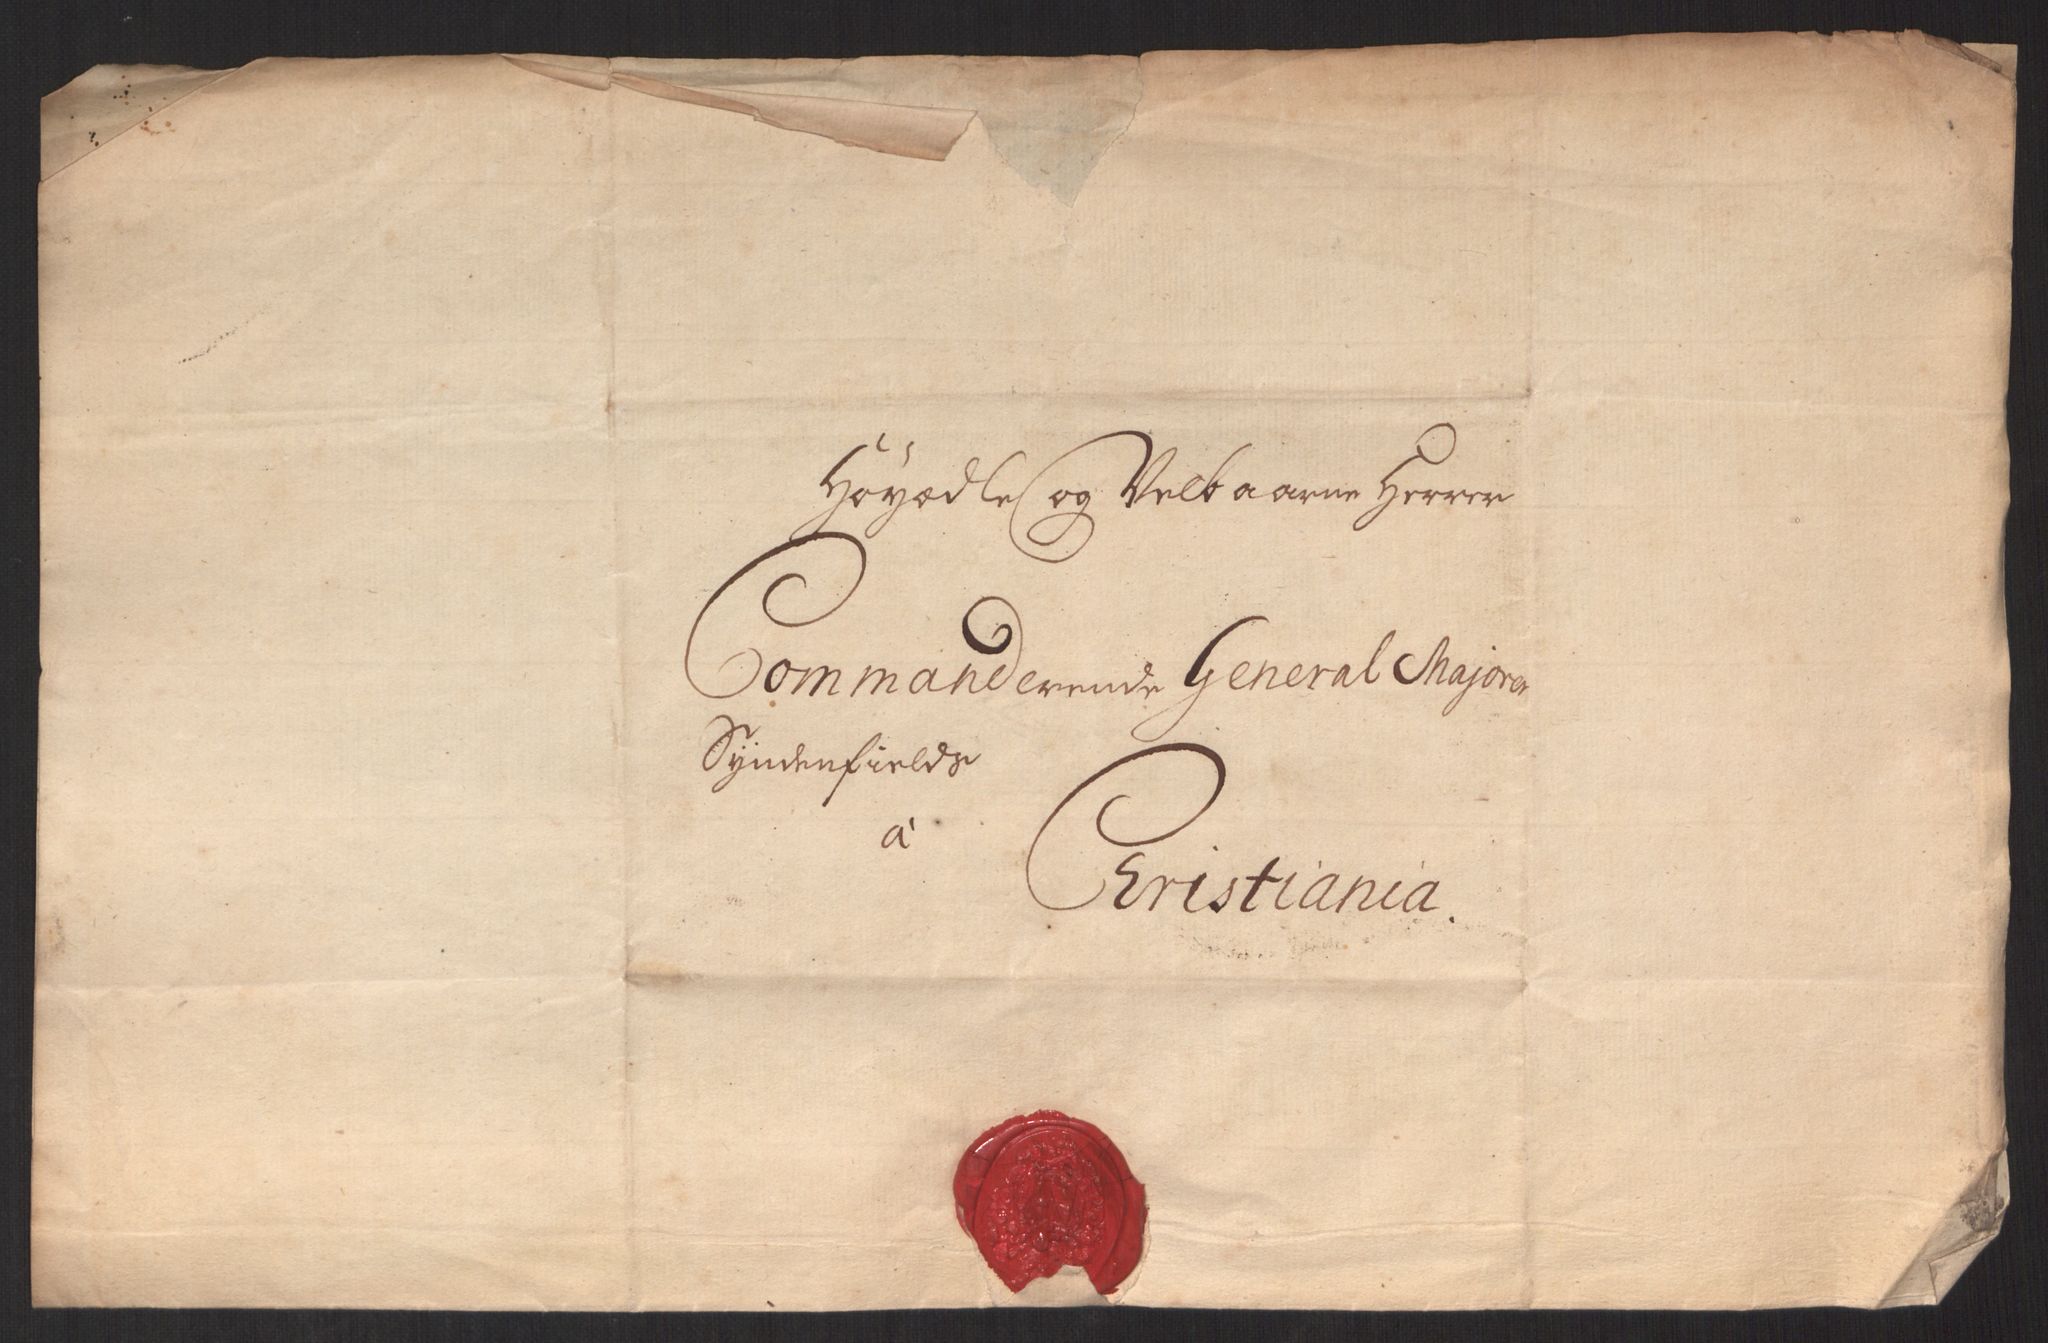 Høyædle og Velbaarne Herrer
Commanderende General Majorer
Syndenfields
à
Cristiania.